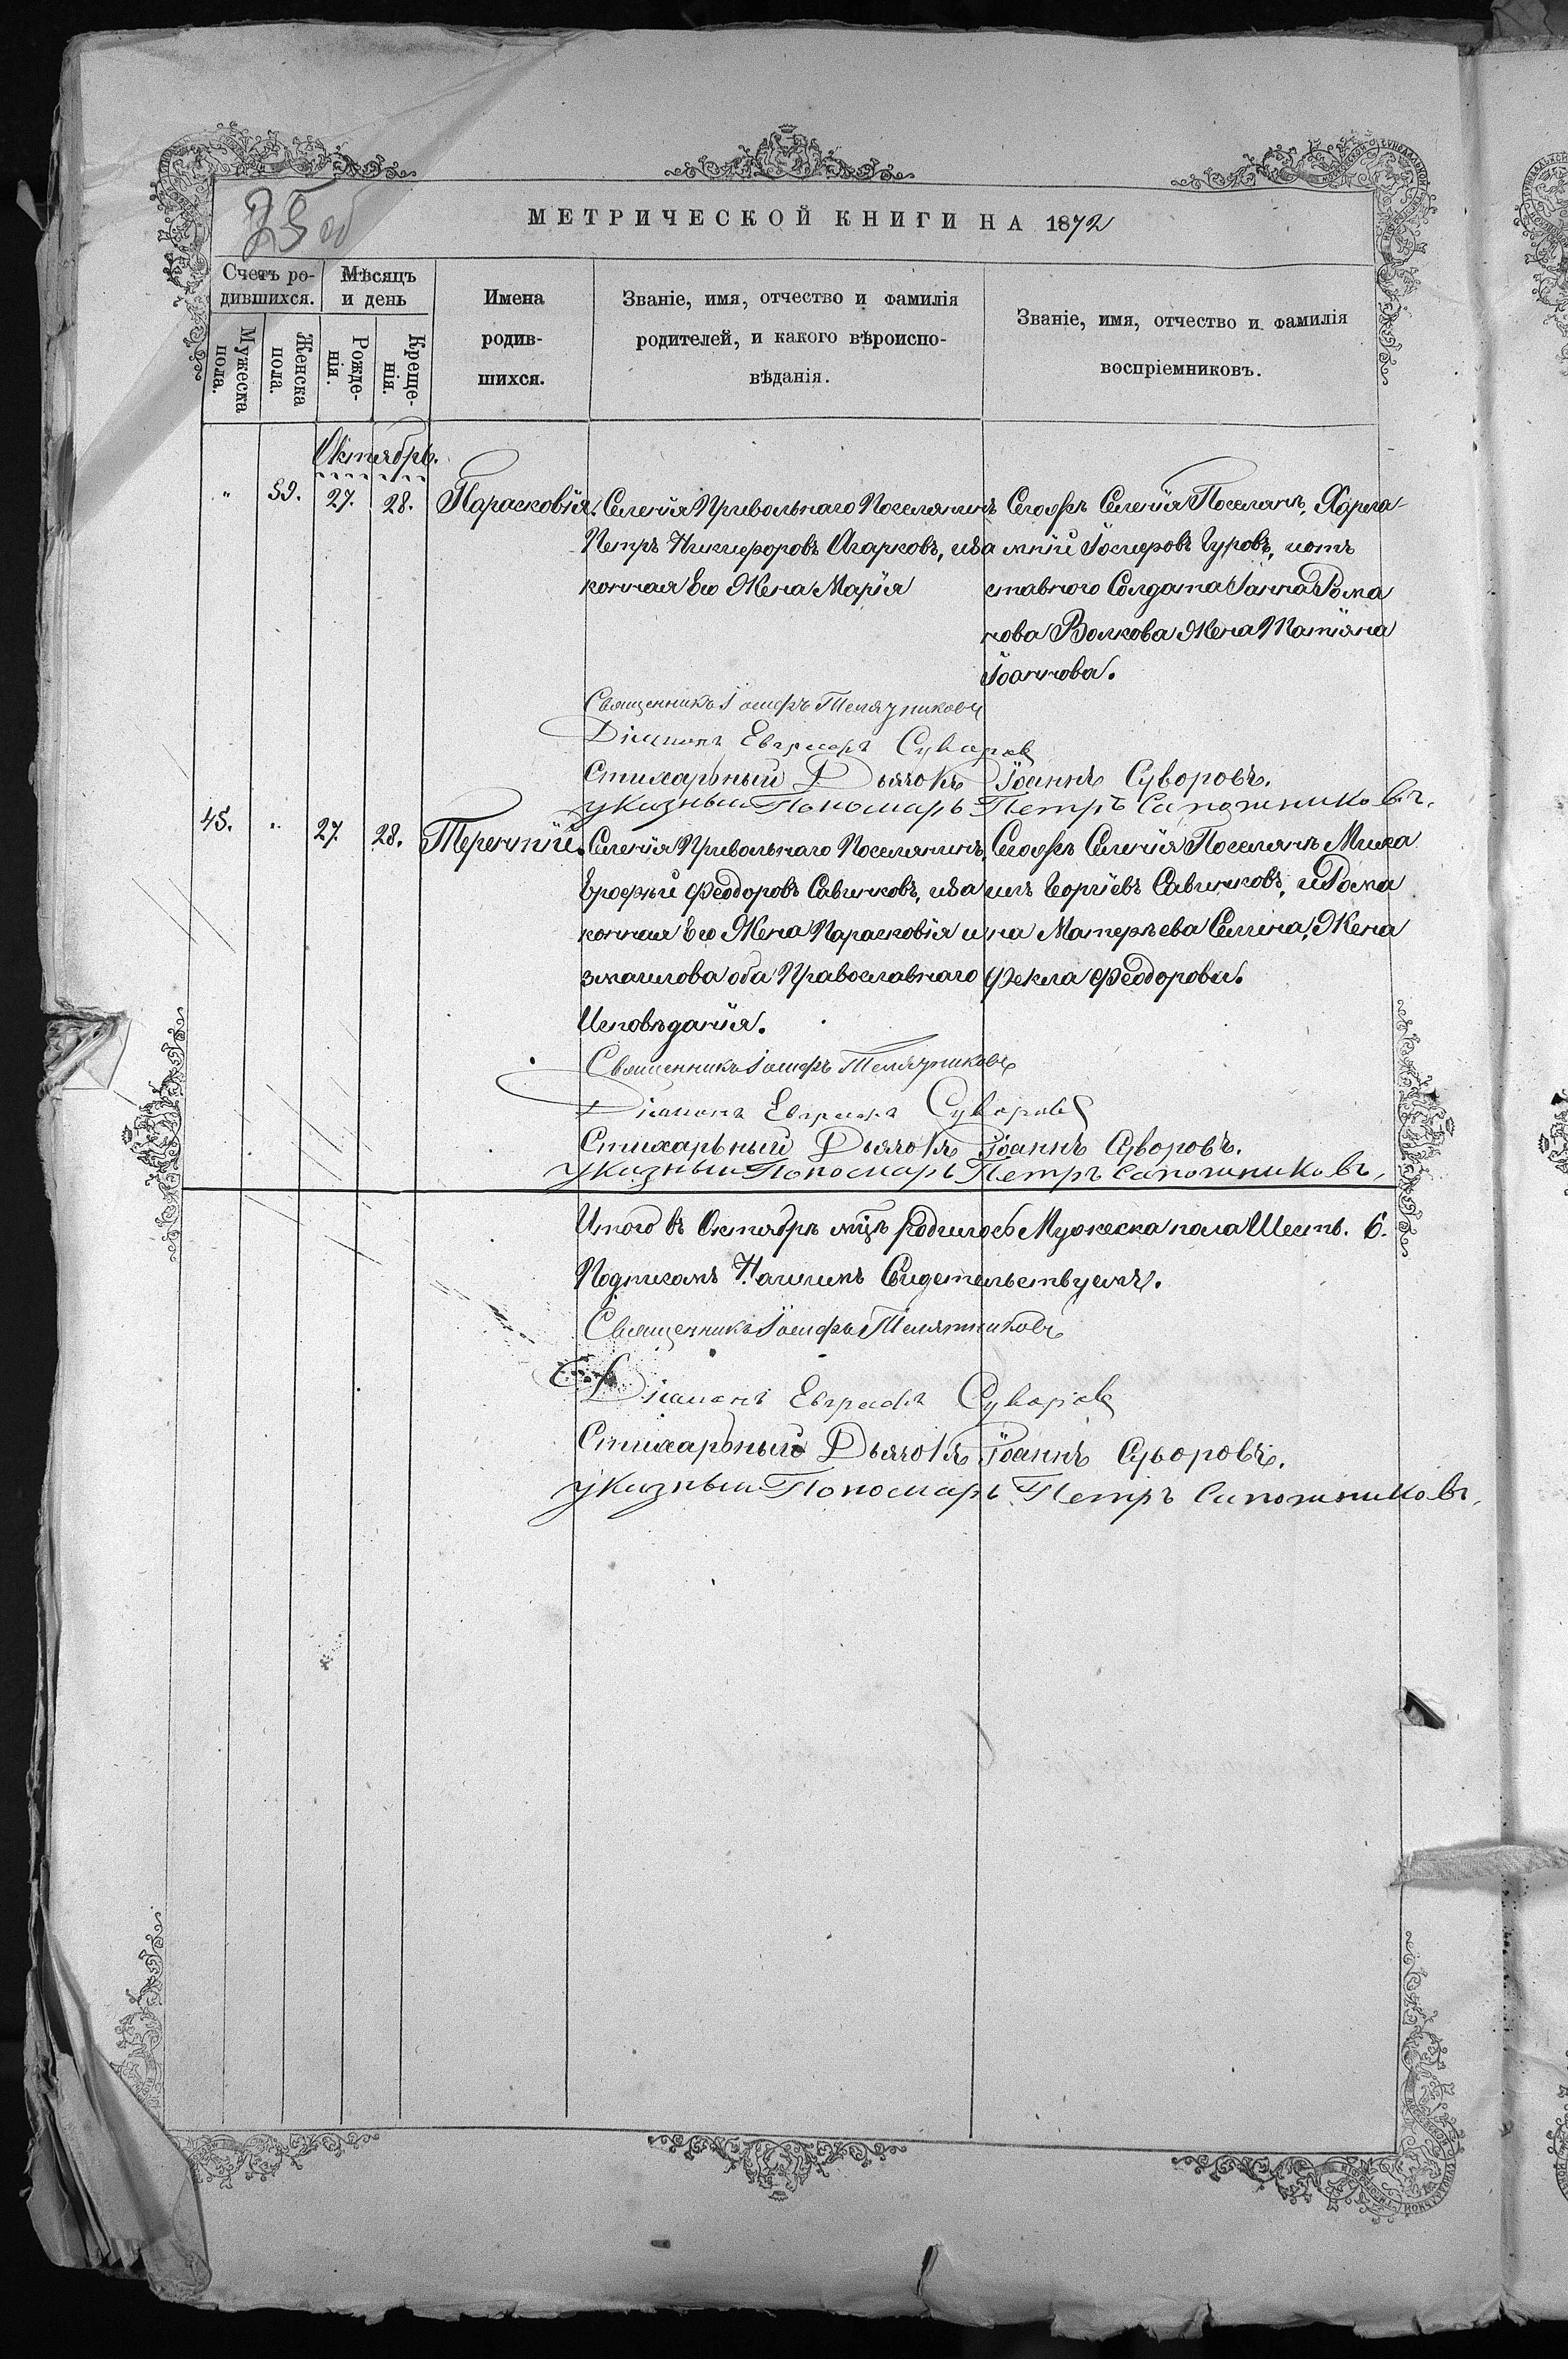 25 об
МЕТРИЧЕСКОЙ КНИГИ НА 1872
Счетъ ро-
дившихся.
Мѣсяцъ
и день
Мужеска
пола.
Женска
пола.
Рожде-
нія.
Креще-
нія.
Имена
родив-
шихся.
Званіе, имя, отчество и фамилія
родителей, и какого вѣроиспо-
вѣданія.
Званіе, имя, отчество и фамилія
воспріемниковъ.
Октябрь.
" 39. 27. 28. Парасковія.
Селенія Привольнаго Поселянинъ
Петръ Никифоровъ Агарковъ, иза
конная Его Жена Марія
Сегожъ Селенія Поселянъ, Харла-
мпій Гуровъ, иот
ставного Солдата Іанна Рома
нова Волкова Жена Татіяна
Іоаннова.
Священникъ Іосифъ Телятниковъ
Діаконъ Евграфъ Суворов
Стихарьный Дьячокъ Іоаннъ Суворовъ.
указный Пономарь Петръ Сапожниковъ.
45. " 27. 28. Терентій.
Селенія Привольнаго Поселянинъ,
Ерофѣй Феодоровъ Савинковъ, иза
конная Его Жена Парасковія и
змаилова оба Православнаго
Исповѣданія.
Сегожъ Селенія Поселянъ Миха
илъ Георгіевъ Савинковъ, и Рома
на Жена
Фекла Феодорова.
Священникъ Іосифъ Телятниковъ
Діаконъ Евграфъ Суворов
Стихарьный Дьячокъ Іоаннъ Суворовъ.
указный Пономарь Петръ Сапожниковъ,
Итого въ Октябрѣ мцѣ родилось Мужеска пола Шесть. 6.
Подписомъ Нашимъ Свидетельствуемъ.
Священникъ Іосифъ Телятниковъ
Діаконъ Евграфъ Суворов
Стихарьный Дьячокъ Іоаннъ Суворовъ.
указный Пономарь Петръ Сапожниковъ,